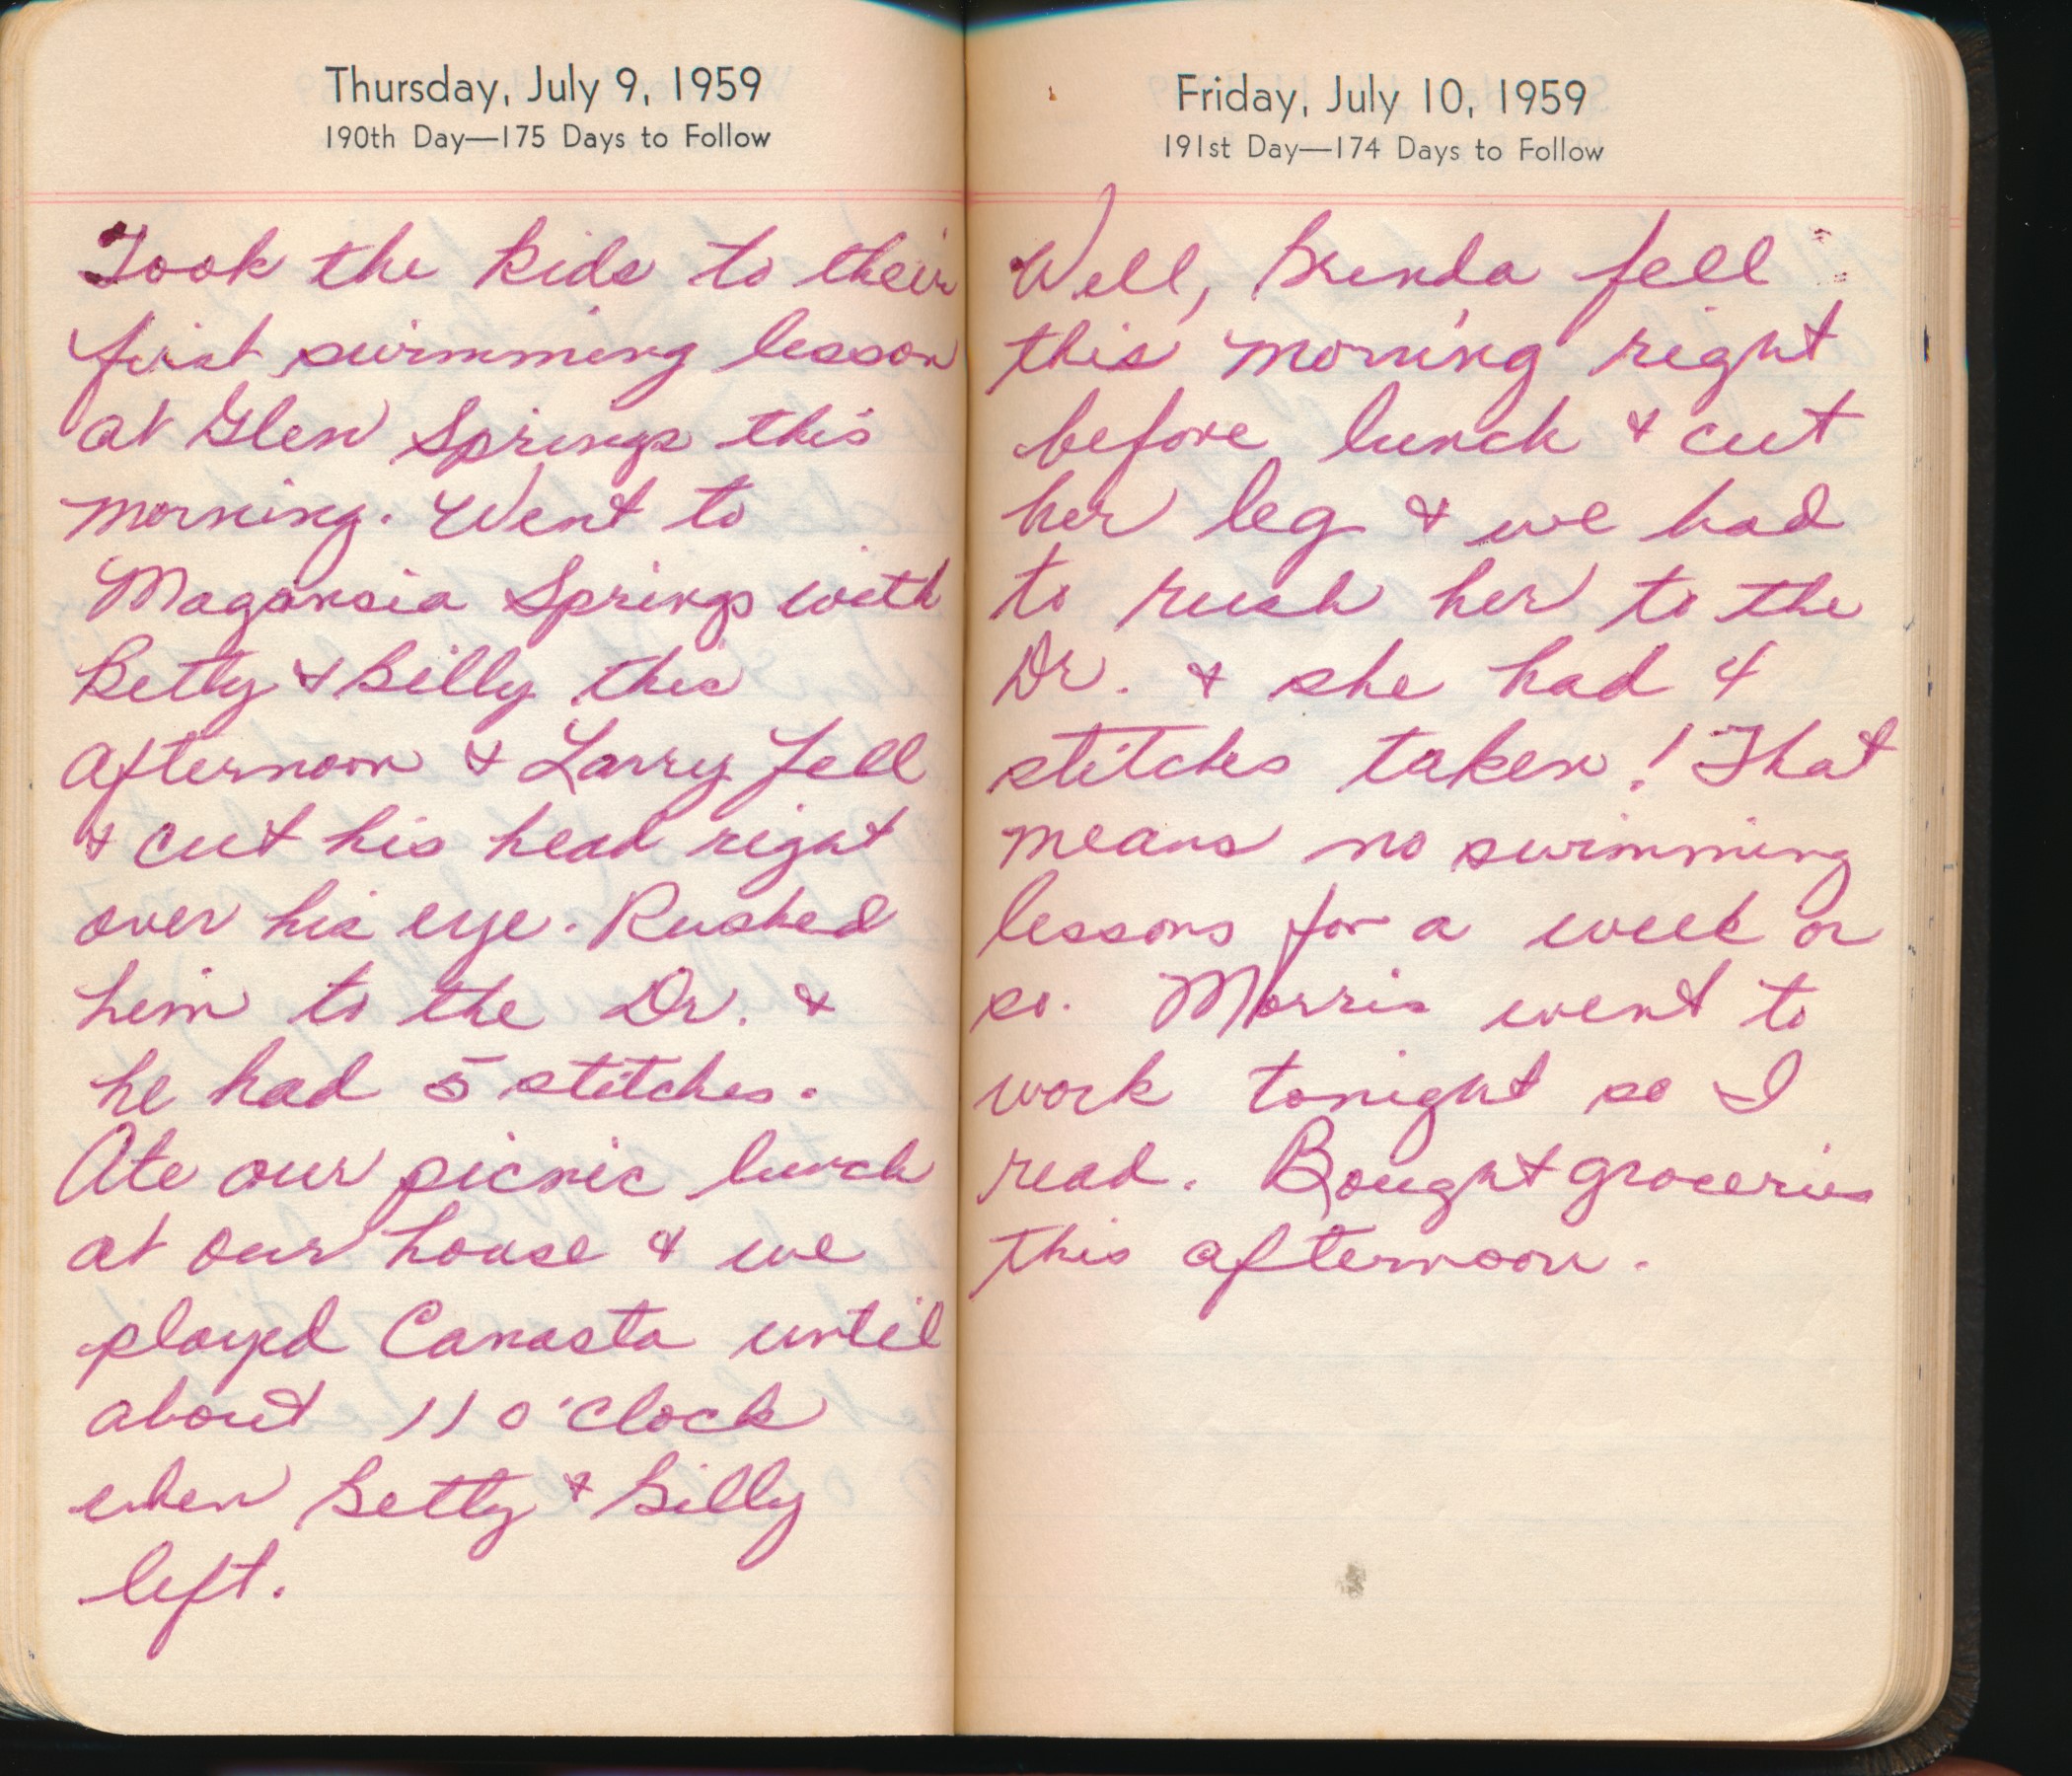 Thursday, July 9, 1959
190th Day—175 Days to Follow
Took the kids to their
first swimming lesson
at Glen Springs this
morning. Went to
Magansia Springs with
Betty & Billy this
afternoon & Larry fell
& cut his head right
over his eye. Rushed
him to the Dr. &
he had 5 stitches.
Ate our picnic lunch
at our house & we
played Canasta until
about 11 o'clock
when Betty & Billy
left.
Friday, July 10, 1959
191st Day—174 Days to Follow
Well, Brenda fell
this morning right
before lunch & cut
her leg & we had
to rush her to the
Dr. & she had 4
stitches taken! That
means no swimming
lessons for a week or
so. Morris went to
work tonight so I
read. Bought groceries
this afternoon.